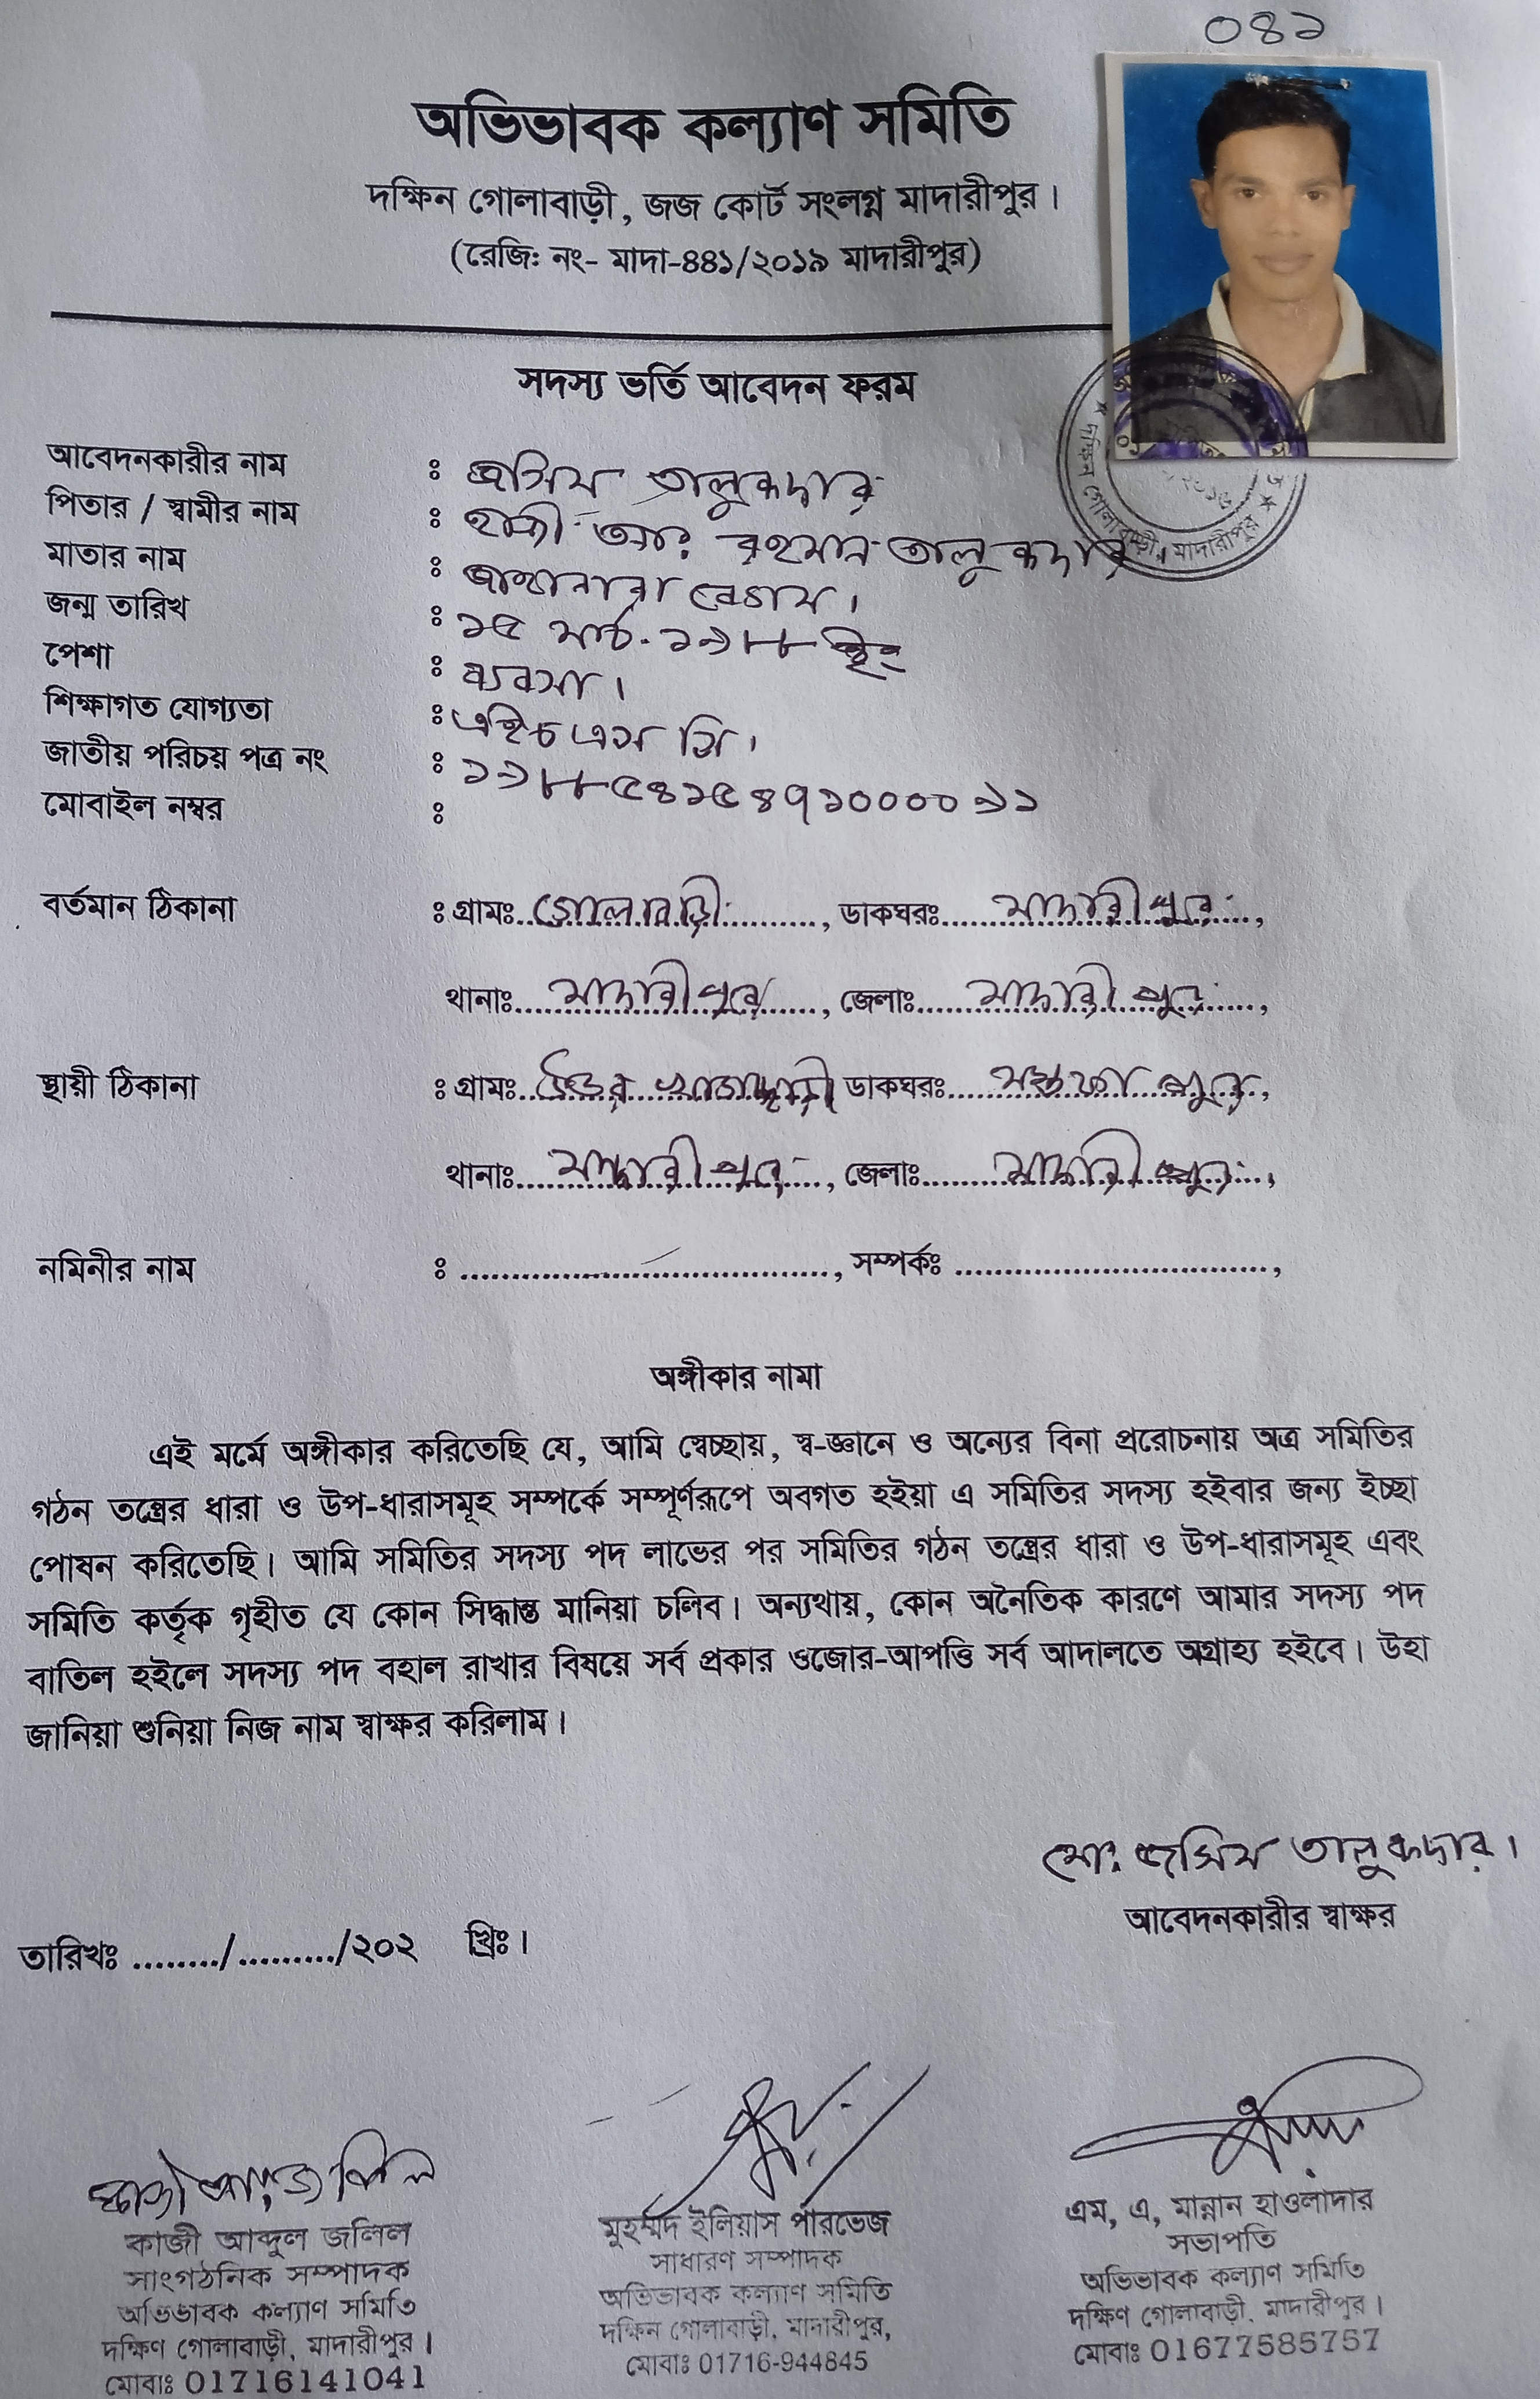 ০৪১
অভিভাবক কল্যাণ সমিতি
দক্ষিন গোলাবাড়ী, জজ কোর্ট সংলগ্ন মাদারীপুর।
(রেজি: নং- মাদা-৪৪১/২০১৯ মাদারীপুর)
সদস্য ভর্তি আবেদন ফরম
আবেদনকারীর নাম : জসিম তালুকদার
পিতার / স্বামীর নাম : হাজী আঃ রহমান তালুকদার।
মাতার নাম : জাহানারা বেগম।
জন্ম তারিখ : ১৫ মার্চ. ১৯৮৮ ইং
পেশা : ব্যবসা।
শিক্ষাগত যোগ্যতা : এইচ এস সি।
জাতীয় পরিচয় পত্র নং : ১৯৮৮৫৪১৫৪৭১০০০০৯১
মোবাইল নম্বর :
দক্ষিন গোলাবাড়ী, মাদারীপুর
বর্তমান ঠিকানা : গ্রামঃ গোলাবাড়ী, ডাকঘরঃ মাদারীপুর,
থানাঃ মাদারীপুর, জেলাঃ মাদারীপুর,
স্থায়ী ঠিকানা : গ্রামঃ উত্তর ডাকঘরঃ মস্তফাপুর,
থানাঃ মাদারীপুর, জেলাঃ মাদারীপুর,
নমিনীর নাম : ...................................., সম্পর্কঃ ................................,
অঙ্গীকার নামা
এই মর্মে অঙ্গীকার করিতেছি যে, আমি স্বেচ্ছায়, স্ব-জ্ঞানে ও অন্যের বিনা প্ররোচনায় অত্র সমিতির
গঠন তন্ত্রের ধারা ও উপ-ধারাসমূহ সম্পর্কে সম্পূর্ণরূপে অবগত হইয়া এ সমিতির সদস্য হইবার জন্য ইচ্ছা
পোষন করিতেছি। আমি সমিতির সদস্য পদ লাভের পর সমিতির গঠন তন্ত্রের ধারা ও উপ-ধারাসমূহ এবং
সমিতি কর্তৃক গৃহীত যে কোন সিদ্ধান্ত মানিয়া চলিব। অন্যথায়, কোন অনৈতিক কারণে আমার সদস্য পদ
বাতিল হইলে সদস্য পদ বহাল রাখার বিষয়ে সর্ব প্রকার ওজোর-আপত্তি সর্ব আদালতে অগ্রাহ্য হইবে। উহা
জানিয়া শুনিয়া নিজ নাম স্বাক্ষর করিলাম।
মোঃ জসিম তালুকদার।
আবেদনকারীর স্বাক্ষর
তারিখঃ ......../........./২০২ খ্রিঃ।
কাজী আব্দুল জলিল
কাজী আব্দুল জলিল
সাংগঠনিক সম্পাদক
অভিভাবক কল্যাণ সমিতি
দক্ষিণ গোলাবাড়ী, মাদারীপুর।
মোবাঃ 01716141041
মুহর্ম্মদ ইলিয়াস পারভেজ
সাধারণ সম্পাদক
অভিভাবক কল্যাণ সমিতি
দক্ষিন গোলাবাড়ী, মাদারীপুর,
মোবাঃ 01716-944845
এম, এ, মান্নান হাওলাদার
সভাপতি
অভিভাবক কল্যাণ সমিতি
দক্ষিণ গোলাবাড়ী, মাদারীপুর।
মোবাঃ 01677585757